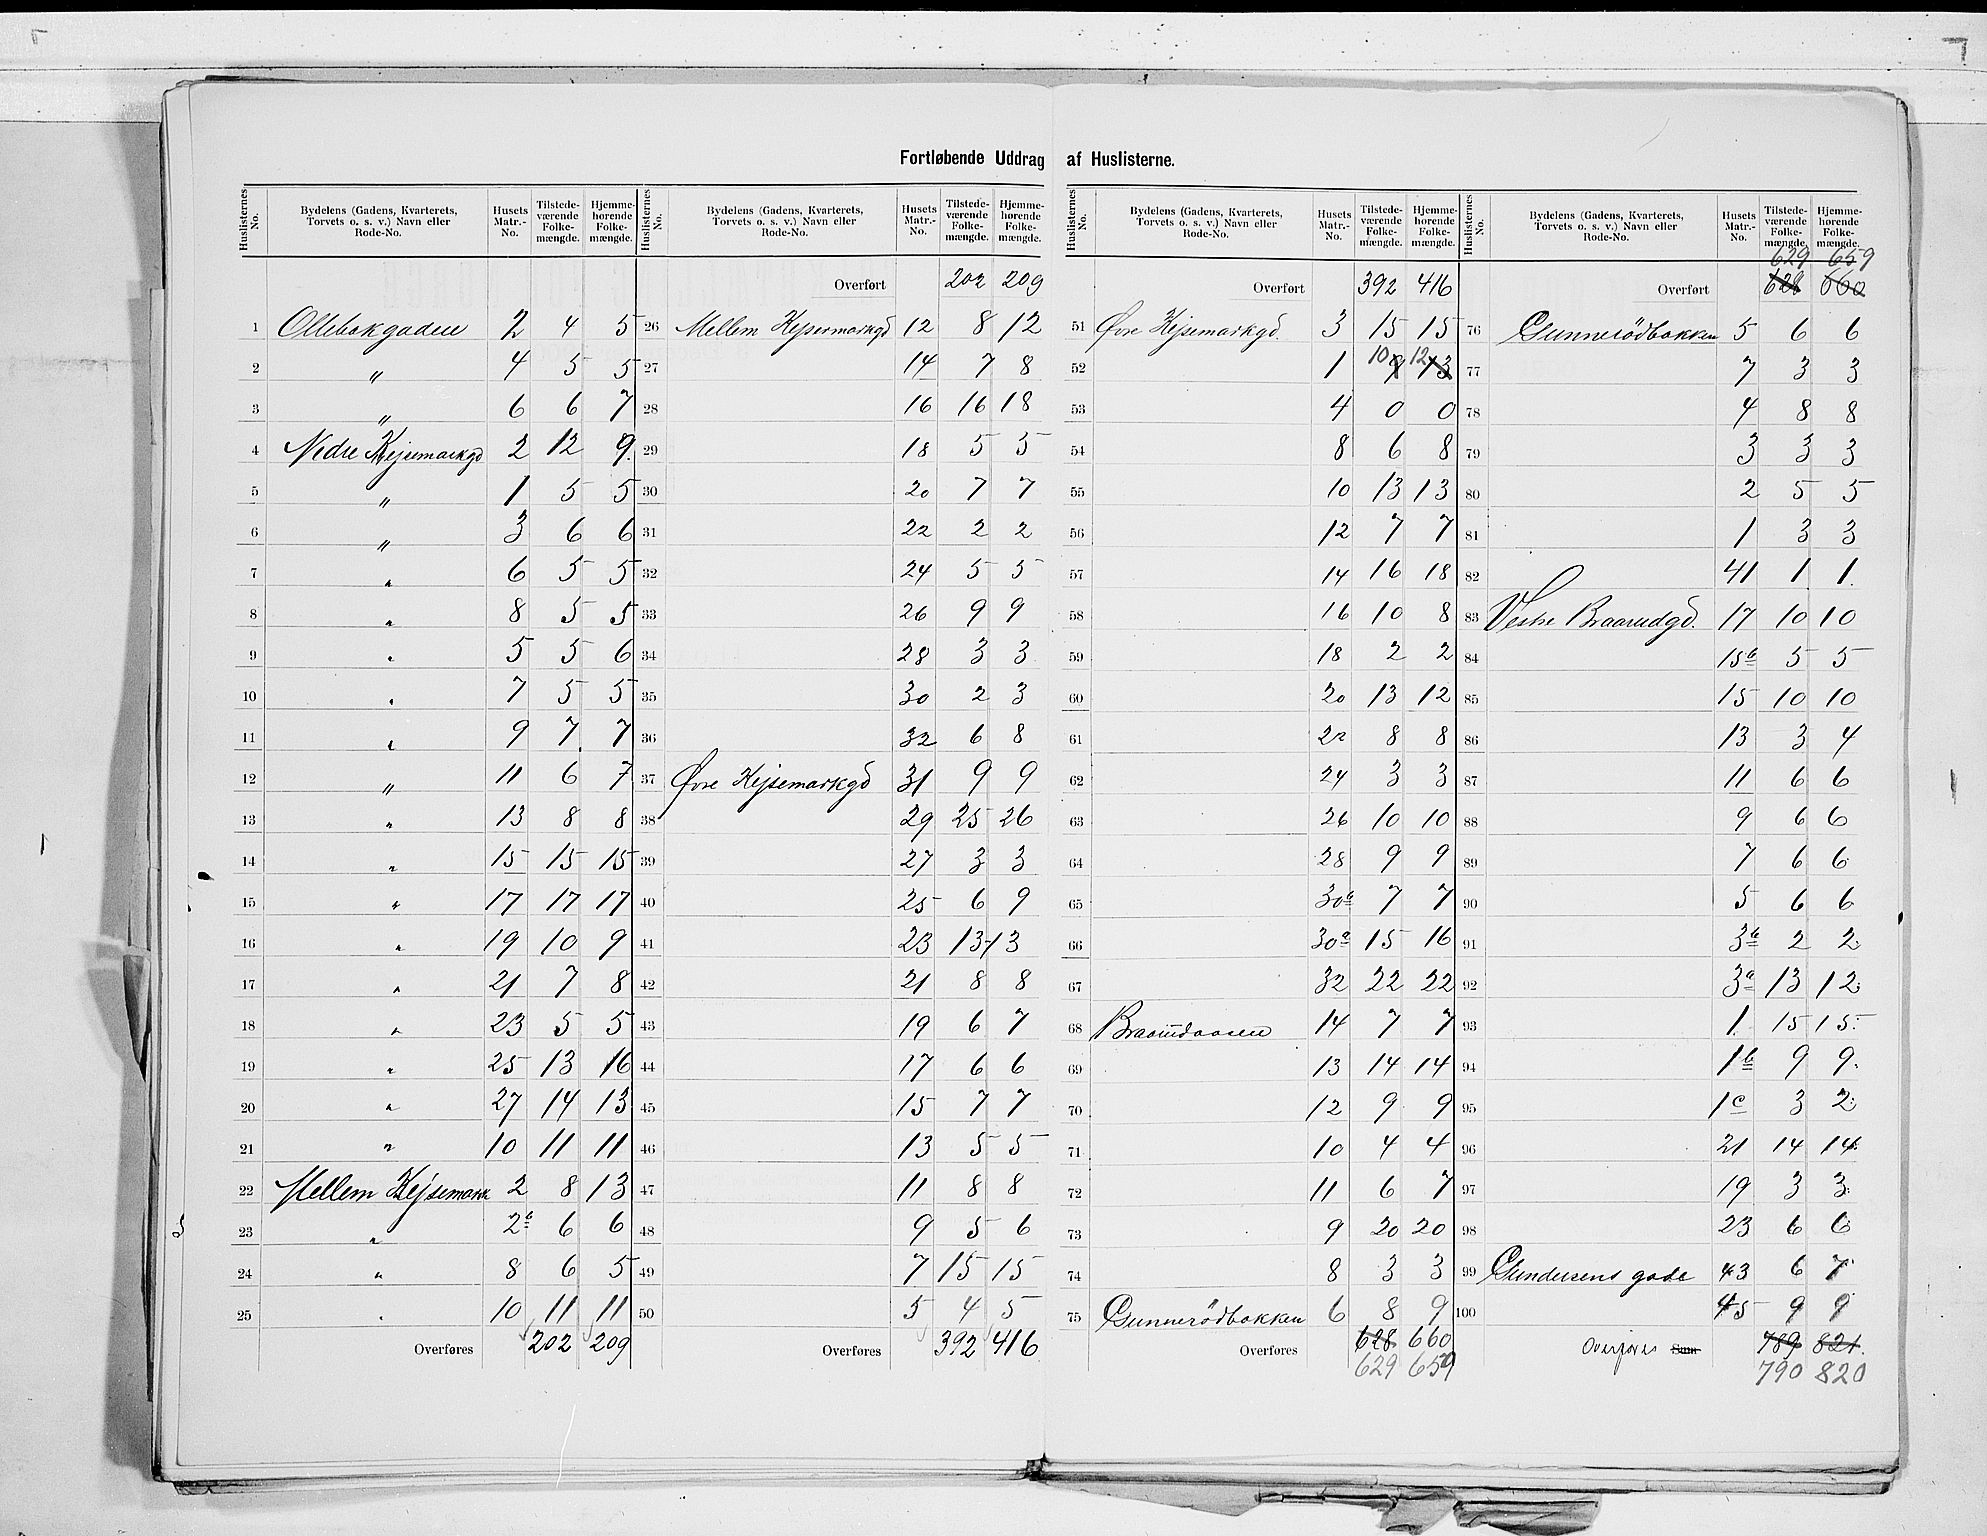 Fortløbende Uddrag af Huslisterne.
Huslisternes No. | Bydelens (Gadens, Kvarterets, Torvets o. s. v.) Navn eller Rode-No. | Husets Matr.-No. | Tilstedeværende Folkemængde. | Hjemmehørende Folkemængde.
1 Ollebakgaden 2 4 5
2 " 4 5 5
3 " 6 6 7
4 Nedre Kejsemarkgd 2 12 9
5 " 1 5 5
6 " 3 6 6
7 " 6 5 5
8 " 8 5 5
9 " 5 5 6
10 " 7 5 5
11 " 9 7 7
12 " 11 6 7
13 " 13 8 8
14 " 15 15 15
15 " 17 17 17
16 " 19 10 9
17 " 21 7 8
18 " 23 5 5
19 " 25 13 16
20 " 27 14 13
21 " 10 11 11
22 Mellem Kejsemark 2 8 13
23 " 2b 6 6
24 " 8 6 5
25 " 10 11 11
Overføres 202 209
Huslisternes No. | Bydelens (Gadens, Kvarterets, Torvets o. s. v.) Navn eller Rode-No. | Husets Matr.-No. | Tilstedeværende Folkemængde. | Hjemmehørende Folkemængde.
Overført 202 209
26 Mellem Kejsemarkgd 12 8 12
27 14 7 8
28 16 16 18
29 18 5 5
30 20 7 7
31 22 2 2
32 24 5 5
33 26 9 9
34 28 3 3
35 30 2 3
36 32 6 8
37 Øvre Kejsemarkgd 31 9 9
38 29 25 26
39 27 3 3
40 25 6 9
41 23 13 13
42 21 8 8
43 19 6 7
44 17 6 6
45 15 7 7
46 13 5 5
47 11 8 8
48 9 5 6
49 7 15 15
50 5 4 5
Overføres 392 416
Huslisternes No. | Bydelens (Gadens, Kvarterets, Torvets o. s. v.) Navn eller Rode-No. | Husets Matr.-No. | Tilstedeværende Folkemængde. | Hjemmehørende Folkemængde.
Overført 392 416
51 Øvre Kejsemarkgd. 3 15 15
52 1 10 9 12 13
53 4 0 0
54 8 6 8
55 10 13 13
56 12 7 7
57 14 16 18
58 16 10 8
59 18 2 2
60 20 13 12
61 22 8 8
62 24 3 3
63 26 10 10
64 28 9 9
65 30b 7 7
66 30a 15 16
67 32 22 22
68 Braarudaasen 14 7 7
69 13 14 14
70 12 9 9
71 10 4 4
72 11 6 7
73 9 20 20
74 8 3 3
75 Gunnerödbakken 6 8 9
Overføres 628 660
629 659
Huslisternes No. | Bydelens (Gadens, Kvarterets, Torvets o. s. v.) Navn eller Rode-No. | Husets Matr.-No. | Tilstedeværende Folkemængde. | Hjemmehørende Folkemængde.
629 659
Overført 628 660
76 Gunnerödbakken 5 6 6
77 7 3 3
78 4 8 8
79 3 3 3
80 2 5 5
81 1 3 3
82 41 1 1.
83 Vestre Braarudgd. 17 10 10
84 15b 5 5
85 15 10 10
86 13 3 4
87 11 6 6
88 9 6 6
89 7 6 6
90 5 6 6
91 3b 2 2
92 3a 13 12
93 1. 15 15
94 1b 9 9
95 1c 3 2
96 21 14 14
97 19 3 3
98 23 6 6
99 Gundersens gade 43 6 7
100 45 9 9
Overføres Sum 789 821.
790 820